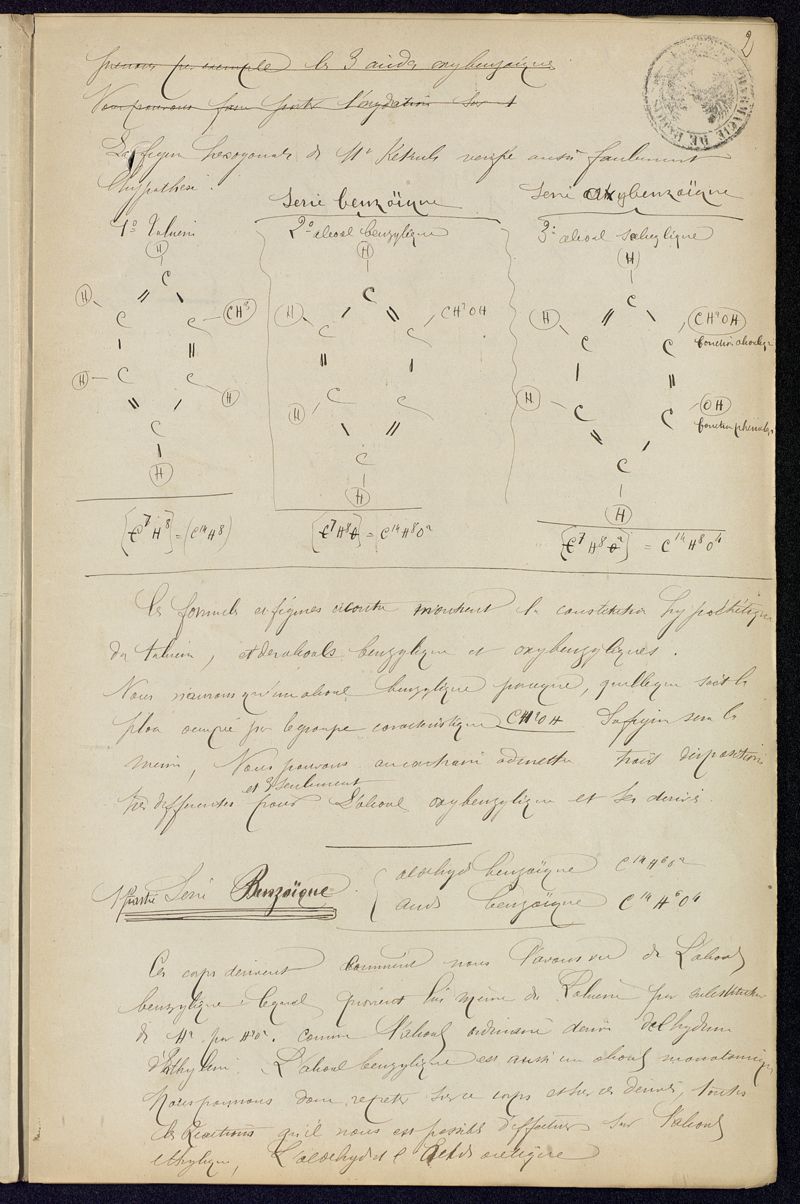 2
prenons par exemple les 3 acides oxybenzoïques
Nous pouvons faire porter l'oxydation sur
La figure hexagonale de Mr Kékulé vérifie aussi facilement
l'hypothèse.
Serie benzoïque
Serie oxybenzoïque
1º Toluène
2º alcool benzylique
3º alcool salicylique
H
H
H
C
C
C
H
CH³
H
CH²OH
H
CH²OH
fonction alcoolique
C
C
C
C
C
C
H
C
C
H
H
C
C
H
C
C
OH
fonction phénolique
C
C
C
H
H
H
[C⁷H⁸] = (C¹⁴H⁸)
[C⁷H⁸O] = C¹⁴H⁸O²
[C⁷H⁸O²] = C¹⁴H⁸O⁴
Les formules et figures ci contre montrent la constitution hypothétique
du toluène, et des alcools benzylique et oxybenzyliques.
Nous n'aurons qu'un alcool benzylique puisque, quelleque soit la
place occupée par le groupe caractéristique CH²OH La figure sera la
même, Nous pouvons au contraire admettre trois dispositions
et 3 seulement
très differentes pour l'alcool oxybenzylique et ses dérivés.
1º partie Serie Benzoïque
aldehyde benzoïque C¹⁴H⁶O²
acide benzoïque C¹⁴H⁶O⁴
Ces corps derivent comme nous l'avons vu de l'alcool
benzylique lequel provient lui même du Toluène par substitution
de H² par H²O². comme l'alcool ordinaire derive de l'hydrure
d'Ethylène. L'alcool benzylique est aussi un alcool monoatomique
Nous pouvons donc repeter sur ce corps et sur ses derivés, toutes
les Réactions qu'il nous est possible d'effectuer sur l'alcool
ethylique, l'aldehyde et l'acide acétique